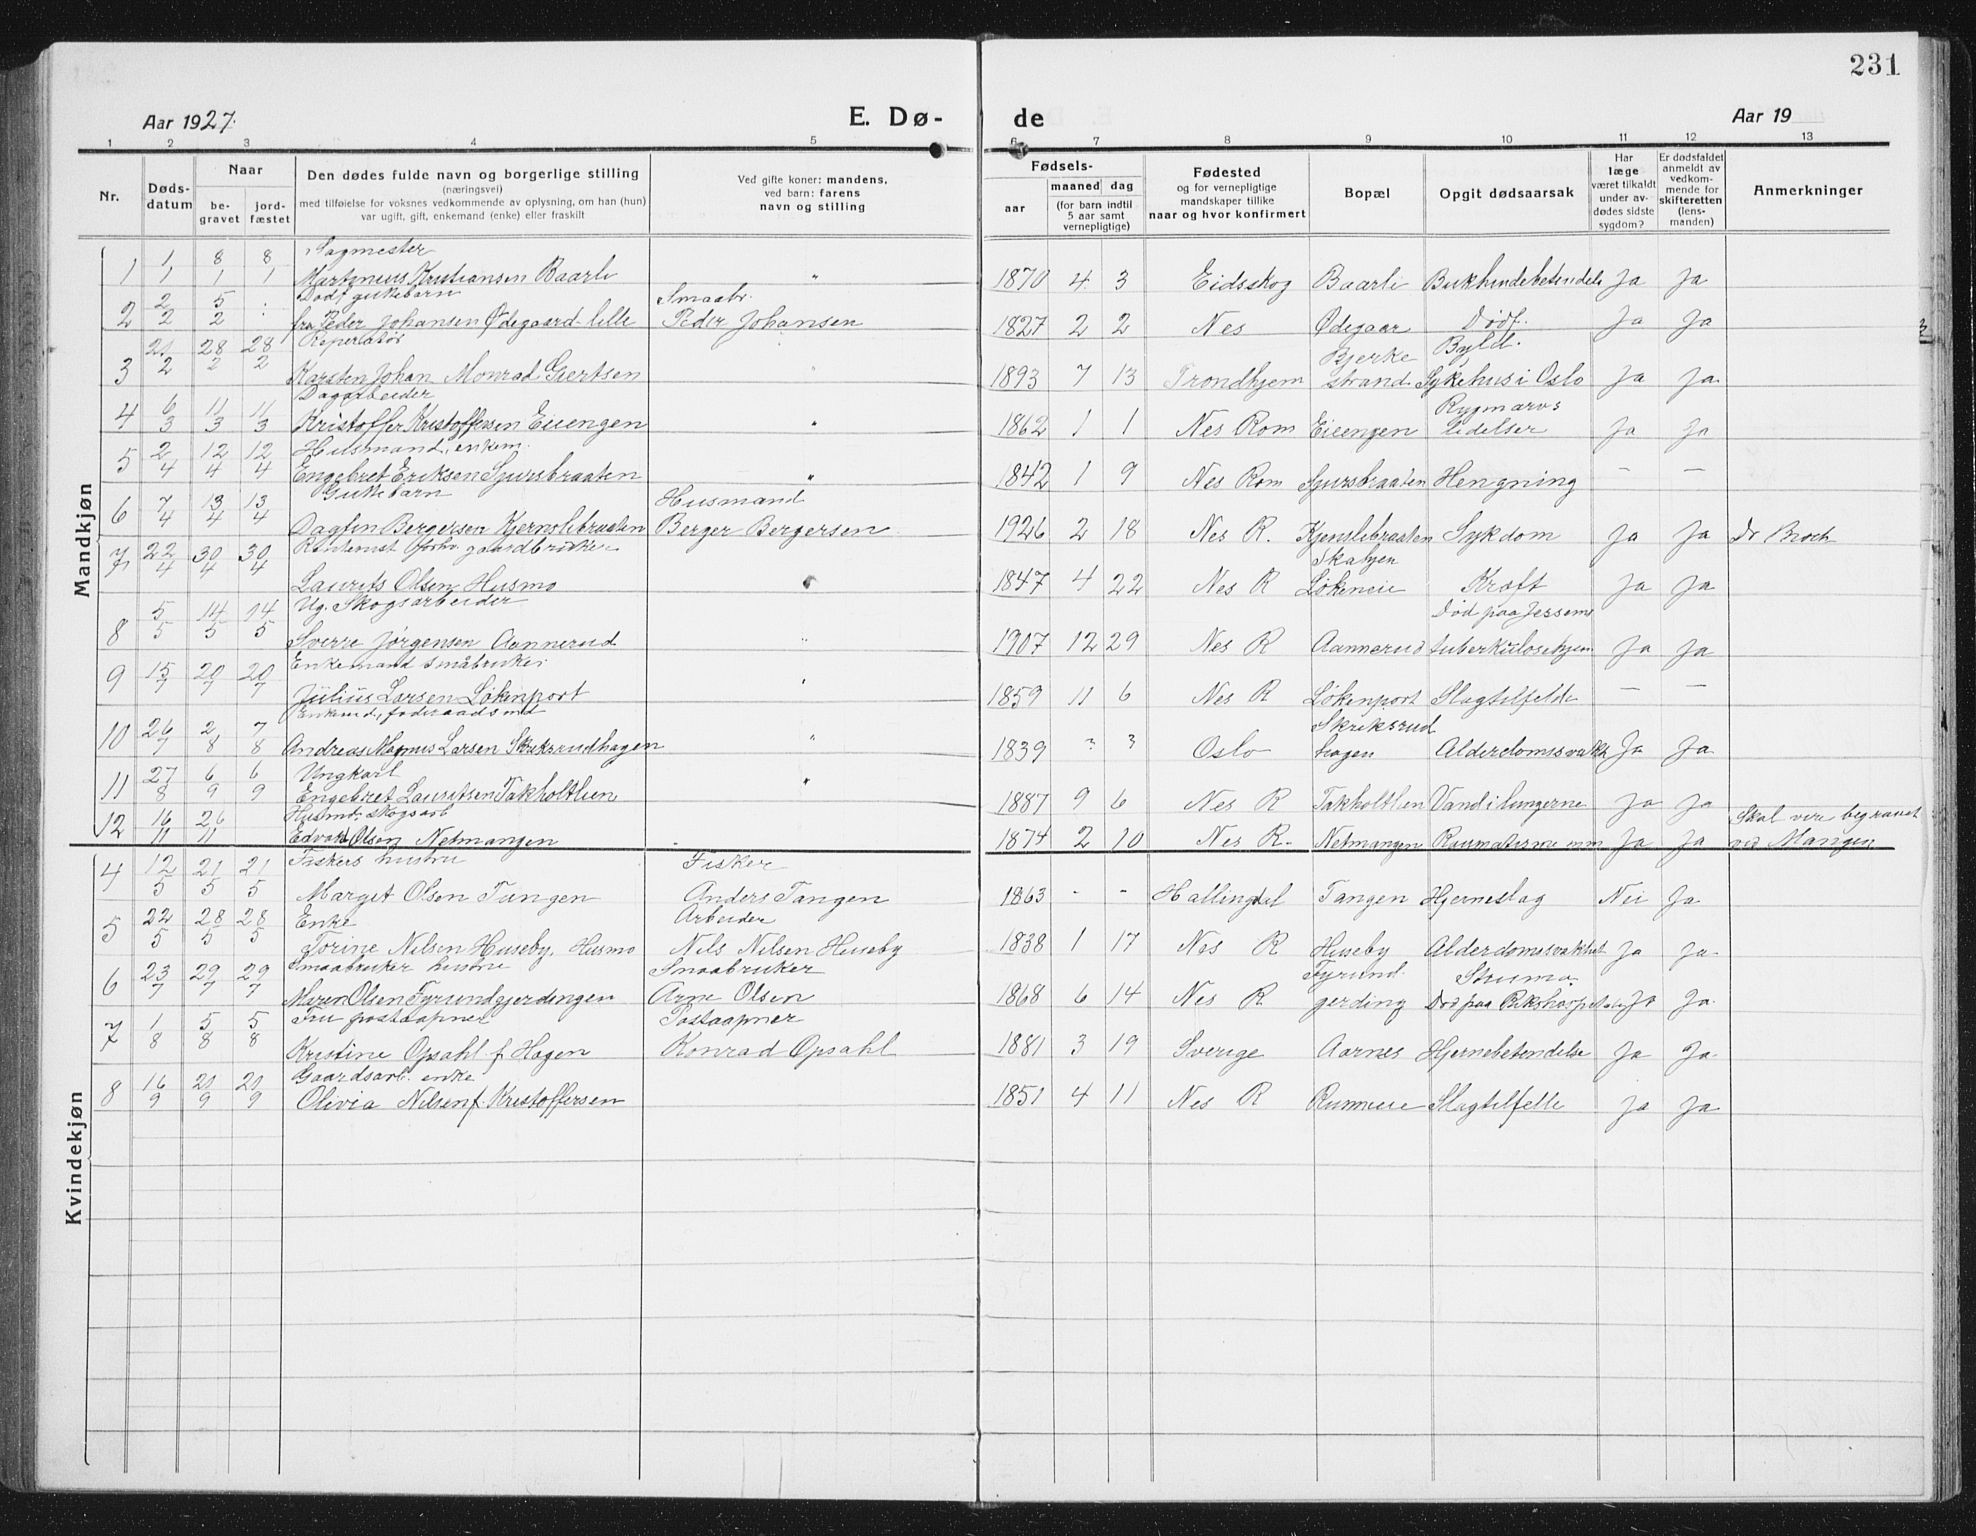 231
Aar 1927.
E. Dø-
de
Aar 19
1 2 3 4 5 6 7 8 9 10 11 12 13
Nr.
Døds-
datum
Naar
be-
gravet
jord-
fæstet
Den dødes fulde navn og borgerlige stilling
(næringsvei)
med tilføielse for voksnes vedkommende av oplysning, om han (hun)
var ugift, gift, enkemand (enke) eller fraskilt
Ved gifte koner: mandens,
ved barn: farens
navn og stilling
Fødsels-
aar
maaned dag
(for barn indtil
5 aar samt
vernepligtige)
Fødested
og for vernepligtige
mandskaper tillike
naar og hvor konfirmert
Bopæl
Opgit dødsaarsak
Har
læge
været tilkaldt
under av-
dødes sidste
sygdom?
Er dødsfaldet
anmeldt av
vedkom-
mende for
skifteretten
(lens-
manden)
Anmerkninger
Mandkjøn
Sagmester
1 1/1 8/1 8/1 Martinius Kristiansen Baarli " 1870 4 3 Eidsskog Baarli Bukhindebetendels Ja Ja
Dødf. guttebarn Smaabr.
2 2/2 5/2 : fra Peder Johansen Ødegaard lille Peder Johansen 1827 2 2 Nes Ødegaar Dødf. Ja Ja
Reperatør Bjerke Byld.
3 21/2 28/2 28/2 Karsten Johan Monrad Gjertsen " 1893 7 13 Trondhjem strand Sykehus i Oslo Ja Ja
Dagarbeider Rygmarvs
4 6/3 11/3 11/3 Kristoffer Kristoffersen Eiengen " 1862 1 1 Nes Rom Eiengen lidelser Ja Ja
Husmand, enkem.
5 2/4 12/4 12/4 Engebret Eriksen Sjursbraaten " 1842 1 9 Nes Rom Sjursbraaten Hengning — —
Guttebarn Husmand
6 7/4 13/4 13/4 Dagfin Bergersen Kjernslibraaten Berger Bergersen 1926 2 18 Nes R. Kjenslibraaten Sykdom Ja Ja Dr Broch
Rentenist forhv. gaardbruker Skabjen
7 22/4 30/4 30/4 Laurits Olsen Husmo 1847 4 22 Nes R Løkeneie Kræft Ja Ja
Ug. Skogsarbeider Død paa Jessem
8 5/5 14/5 14/5 Sverre Jørgensen Aannerud " 1907 12 29 Nes R Aannerud tuberkulosehjem Ja Ja
Enkemand småbruker
9 15/7 20/7 20/7 Julius Larsen Løkenport " 1859 11 6 Nes R Løkenport Slagtilfelde — —
Enkemd, føderaadsmd Skriksrud
10 26/7 2/8 7/8 Andreas Magnus Larsen Skriksrudhagen " 1839 ? ? Oslo hagen Alderdomssvakh Ja Ja
Ungkarl
11 27/8 6/9 6/9 Engebret Lauritsen Takholtlien " 1887 9 6 Nes R Takholtlien Vand i lungerne Ja Ja
Husmd. skogsarb Skal være begravet
12 16/11 26/11 Edvard Olsen Netmangen 1874 2 10 Nes R. Netmangen Raumatisme mm Ja Ja ved Mangen
Kvindekjøn
Fiskers hustru Fisker
4 12/5 21/5 21/5 Margit Olsen Tangen Anders Tangen 1863 - - Hallingdal Tangen Hjerneslag Nei Ja
Enke Arbeider
5 22/5 28/5 28/5 Torine Nilsen Huseby, Husmo Nils Nilsen Huseby 1838 1 17 Nes R Huseby Alderdomssvakhet Ja Ja
Smaabruker hustru Smaabruker Fyrund. Struma
6 23/7 29/7 29/7 Maren Olsen Fyrundgjerdingen Arne Olsen 1868 6 14 Nes R gerding Død paa Rikshospitale Ja Ja
Fru postaapner Postaapner
7 1/8 5/8 5/8 Kristine Opsahl f. Hagen Konrad Opsahl 1881 3 19 Sverige Aarnes Hjernebetendelse Ja Ja
Gaardsarb. enke
8 16/9 21/9 21/9 Olivia Nilsen f. Kristoffersen 1851 4 11 Nes R Runneie Slagtilfelle Ja Ja